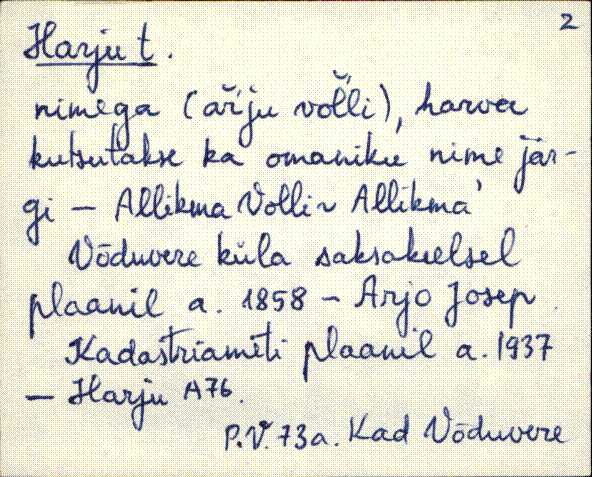 2
Harju t.
nimega (är̆ju vol̆li), harva
kutsutakse ka omaniku nime jär-
gi – Allikma Volli ~ Allikma'
Võduvere küla saksakeelsel
plaanil a. 1858 – Arjo Josep.
Kadastriameti plaanil a. 1937
– Harju A76.
P.V. 73a. Kad Võduvere